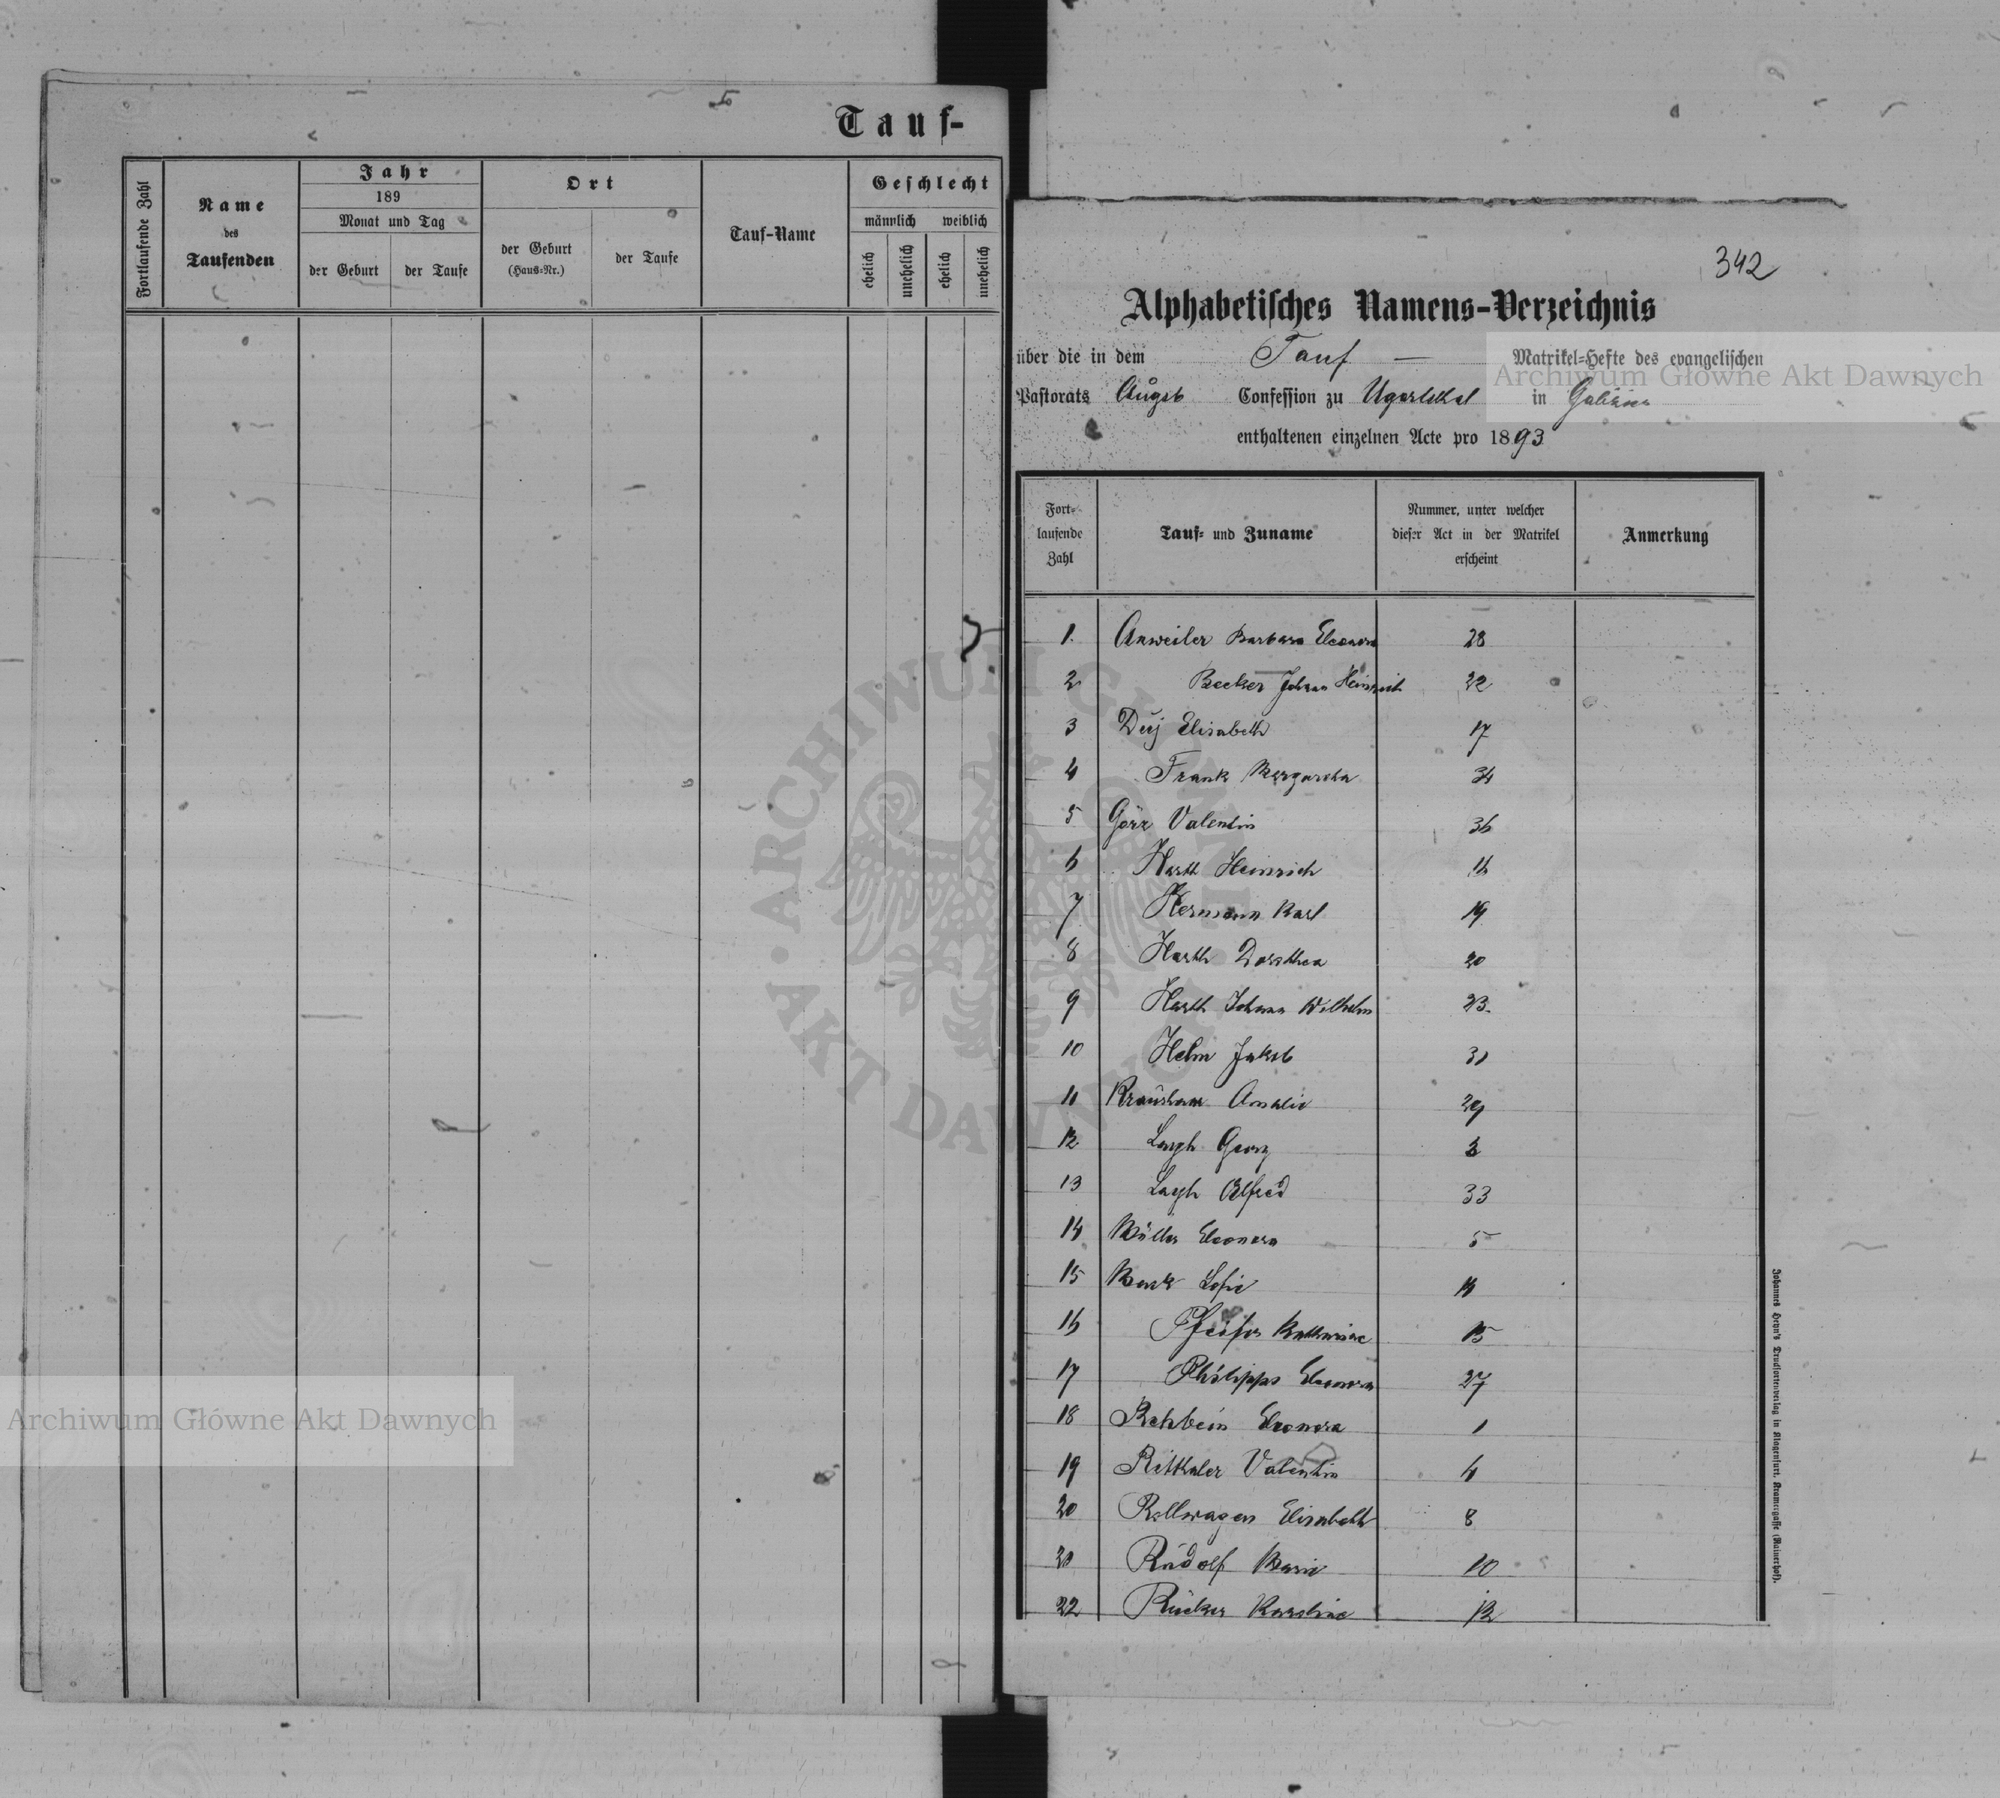 Tauf-
Fortlaufende Zahl
Name
des
Taufenden
Jahr
189
Monat und Tag
der Geburt
der Taufe
Ort
der Geburt
(Haus-Nr.)
der Taufe
Tauf-Name
Geschlecht
männlich weiblich
ehelich
unehelich
ehelich
unehelich
342
Alphabetisches Namens-Verzeichnis
über die in dem Tauf — Matrikel-Hefte des evangelischen
Pastorats Augsb Confession zu Ugartsthal in Galizien
enthaltenen einzelnen Acte pro 1893
Fort-
laufende
Zahl
Tauf- und Zuname
Nummer, unter welcher
dieser Act in der Matrikel
erscheint
Anmerkung
1. Anweiler Barbara Eleonora 28
2 Becker Johann Heinrich 22
3 Elisabeth 17
4 Frank Margaretha 34
5 Görz Valentin 36
6 Harth Heinrich 16
7 Hermann Karl 19
8 Harth Dorothea 20
9 Harth Johann Wilhelm 23.
10 Helm Jakob 31
11 Amalie 29
12 Georg
13 Alfred 33
14 Müller Eleonora 5
15 Sofie
16 Pfeifer Katharine 15
17 Philipps Eleonora 27
18 Rehbein Eleonora 1
19 Ritthaler Valentin
20 Rollwagen Elisabeth 8
21 Rudolf Marie 10
22 Rücker Karoline 12
Johannes Heyn's Drucksortenverlag in Klagenfurt, Kramergasse (Rainerhof).
Archiwum Główne Akt Dawnych
Archiwum Główne Akt Dawnych
ARCHIWUM GŁÓWNE • AKT DAWNYCH •